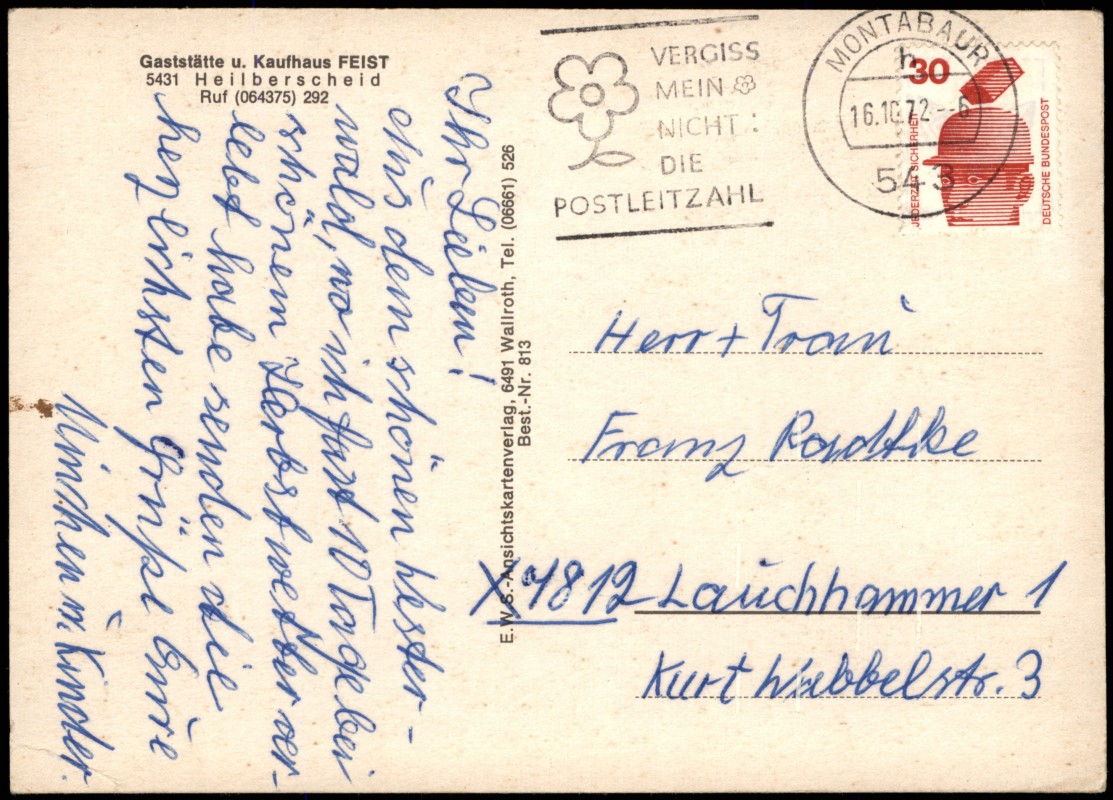 Gaststätte u. Kaufhaus FEIST
5431 Heilberscheid
Ruf (064375) 292
Ihr Lieben!
Aus dem schönen Wester-
wald, wo ich fast 10 Tage bei
schönem Herbstwetter ver-
lebt habe senden die
herzlichsten Grüße Eure
Minchen u. Kinder.
E.W.S.-Ansichtskartenverlag, 6491 Wallroth, Tel. (06661) 526
Best.-Nr. 813
VERGISS
MEIN
NICHT:
DIE
POSTLEITZAHL
MONTABAUR
h
16.10.72--6
543
30
JEDERZEIT SICHERHEIT
DEUTSCHE BUNDESPOST
Herr + Frau
Franz Radtke
X 7812 Lauchhammer 1
Kurt Wiebbelstr. 3